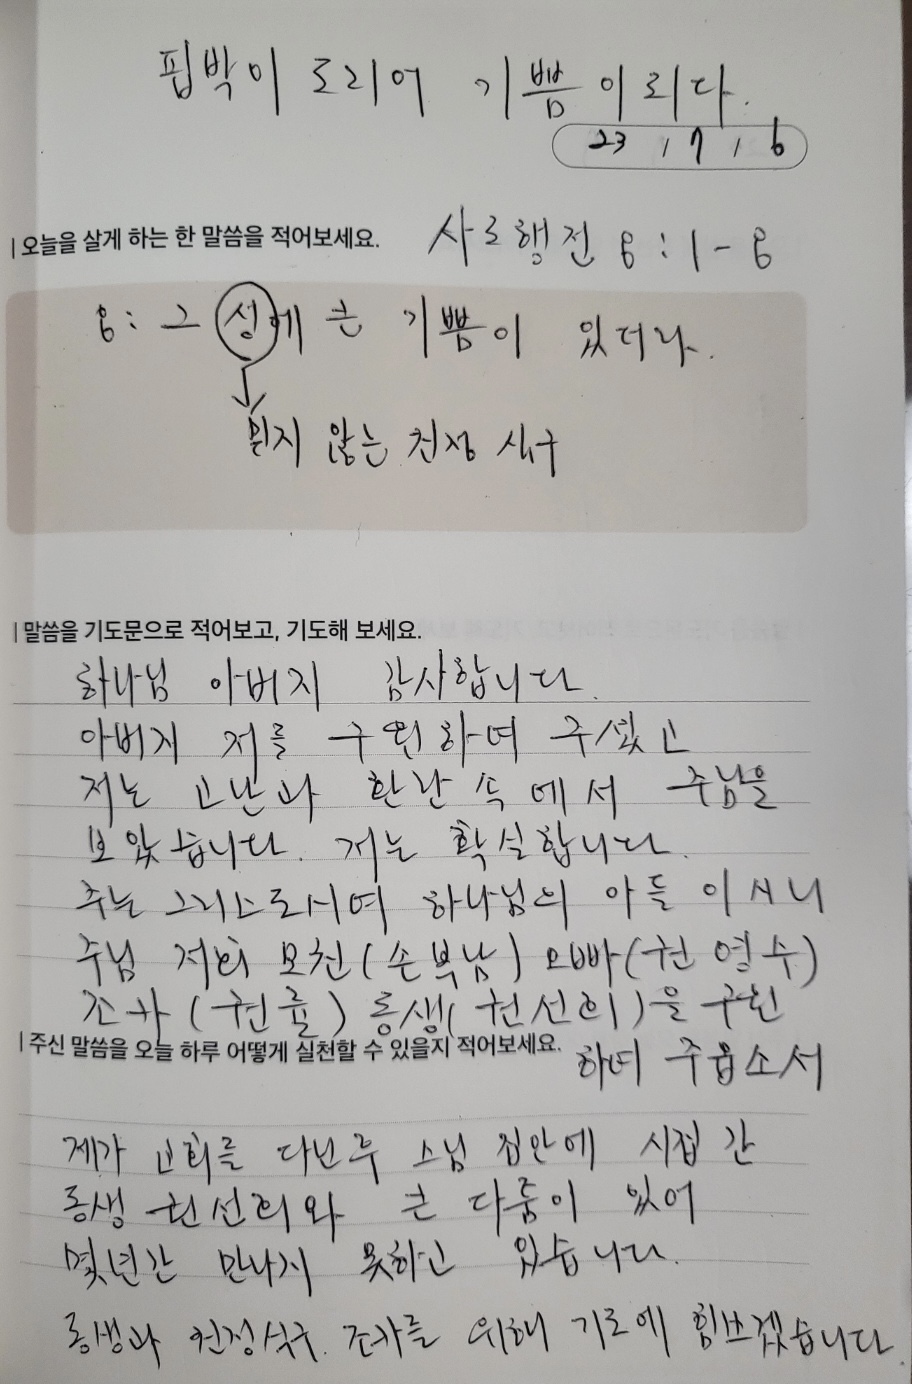 핍박이 도리어 기쁨이리다.
23 / 7 / 6
| 오늘을 살게 하는 한 말씀을 적어보세요. 사도행전 8:1-8
8: 그 성에 큰 기쁨이 있더라.
믿지 않는 친정 식구
| 말씀을 기도문으로 적어보고, 기도해 보세요.
하나님 아버지 감사합니다.
아버지 저를 구원하여 주셨고
저는 고난과 환란 속에서 주님을
보았습니다. 저는 확실합니다.
주는 그리스도시며 하나님의 아들 이시니
주님 저희 모친(손복남) 오빠(권영수)
조카(권율) 동생(권선희)을 구원
하여 주옵소서
| 주신 말씀을 오늘 하루 어떻게 실천할 수 있을지 적어보세요.
제가 교회를 다닌후 스님 집안에 시집 간
동생 권선희와 큰 다툼이 있어
몇년간 만나지 못하고 있습니다.
동생과 친정식구. 조카를 위해 기도에 힘쓰겠습니다